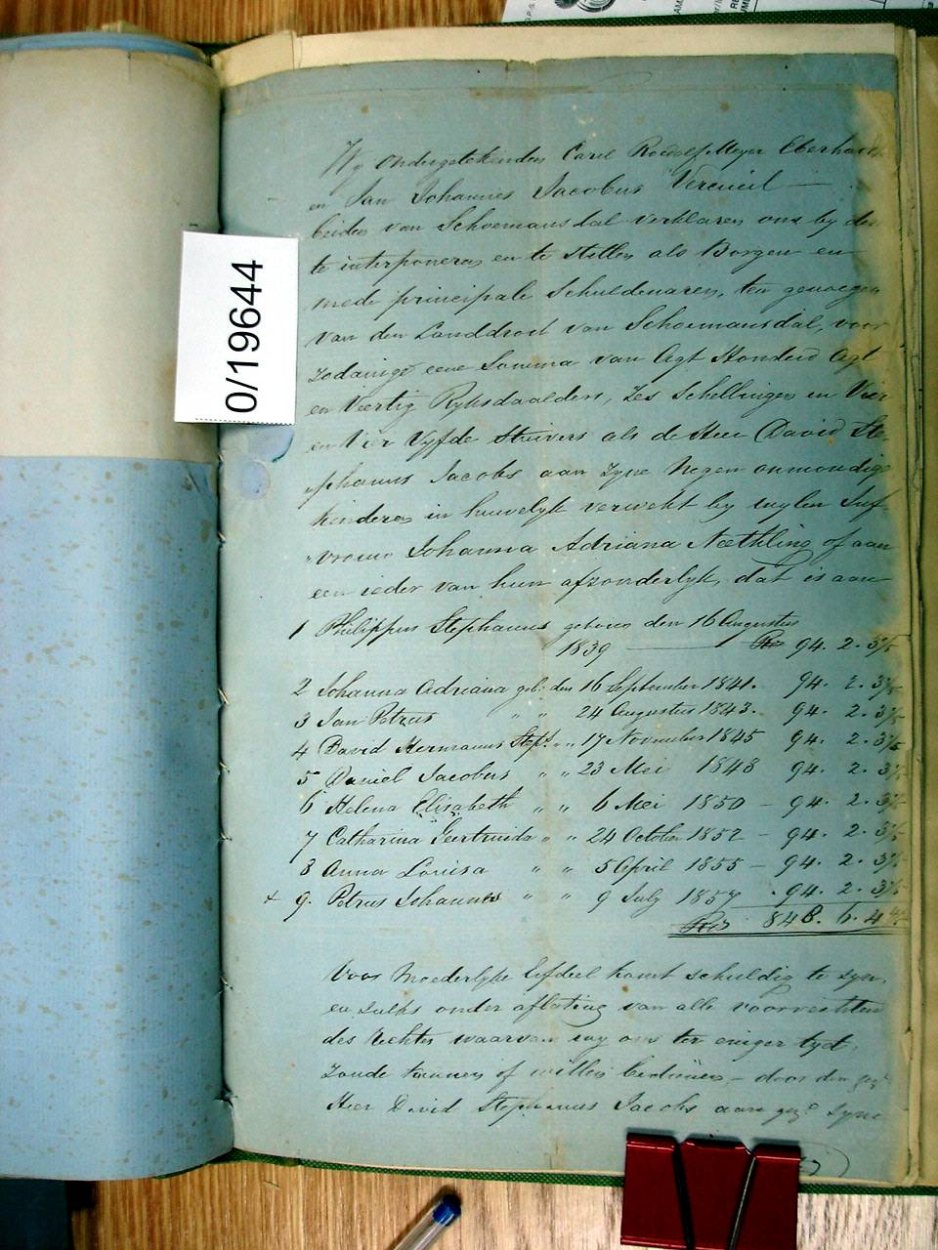 0/19644
Wy Ondergetekenden Carel Roedolf Meyer Eberhard
en Jan Johannes Jacobus Vercuiel —
beides van Schoemansdal verklaren ons by dez
te interponeren en te stellen als Borgen en
mede principale Schuldenaren, ten genoegen
van den Landdrost van Schoemansdal, voor
zodanige eene Somma van Agt Honderd Agt
en Veertig Ryksdaalders, Zes Schellingen en Vier
en Vier Vyfde Stuivers als de Heer David Ste-
"phanus Jacobs aan Zyne Negen onmondige
kinderen in huwelyk verwekt by wylen Juf-
"vrouw Johanna Adriana Nœthling of aan
een ieder van hun afzonderlyk, dat is aan
1 Philippus Stephanus geboren den 16 Augustus
1839 — Rds 94. 2. 3 1/5
2 Johanna Adriana geb: den 16 September 1841. 94. 2. 3 1/5
3 Jan Petrus " " 24 Augustus 1843. 94. 2. 3 1/5
4 David Hermanus Steph. " " 17 November 1845 94. 2. 3 1/5
5 Daniel Jacobus " " 23 Mei 1848 94. 2. 3 1/5
6 Helena Elisabeth " " 6 Mei 1850 – 94. 2. 3 1/5
7 Catharina Geertruida " " 24 October 1852 – 94. 2. 3 1/5
8 Anna Louisa " " 5 April 1855 – 94. 2. 3 1/5
+ 9. Petrus Johannes " " 9 July 1857 . 94. 2. 3 1/5
Rds 848. 6. 4 4/5
Voor Moederlyke Erfdeel komt schuldig te zyn,
en zulks onder aflating van alle voorrechten
des Rechts waarvan wy ons ter eniger tyd
zoude kunnen of willen bedienen – door den gez.
Heer David Stephanus Jacobs aan gez. Zyne